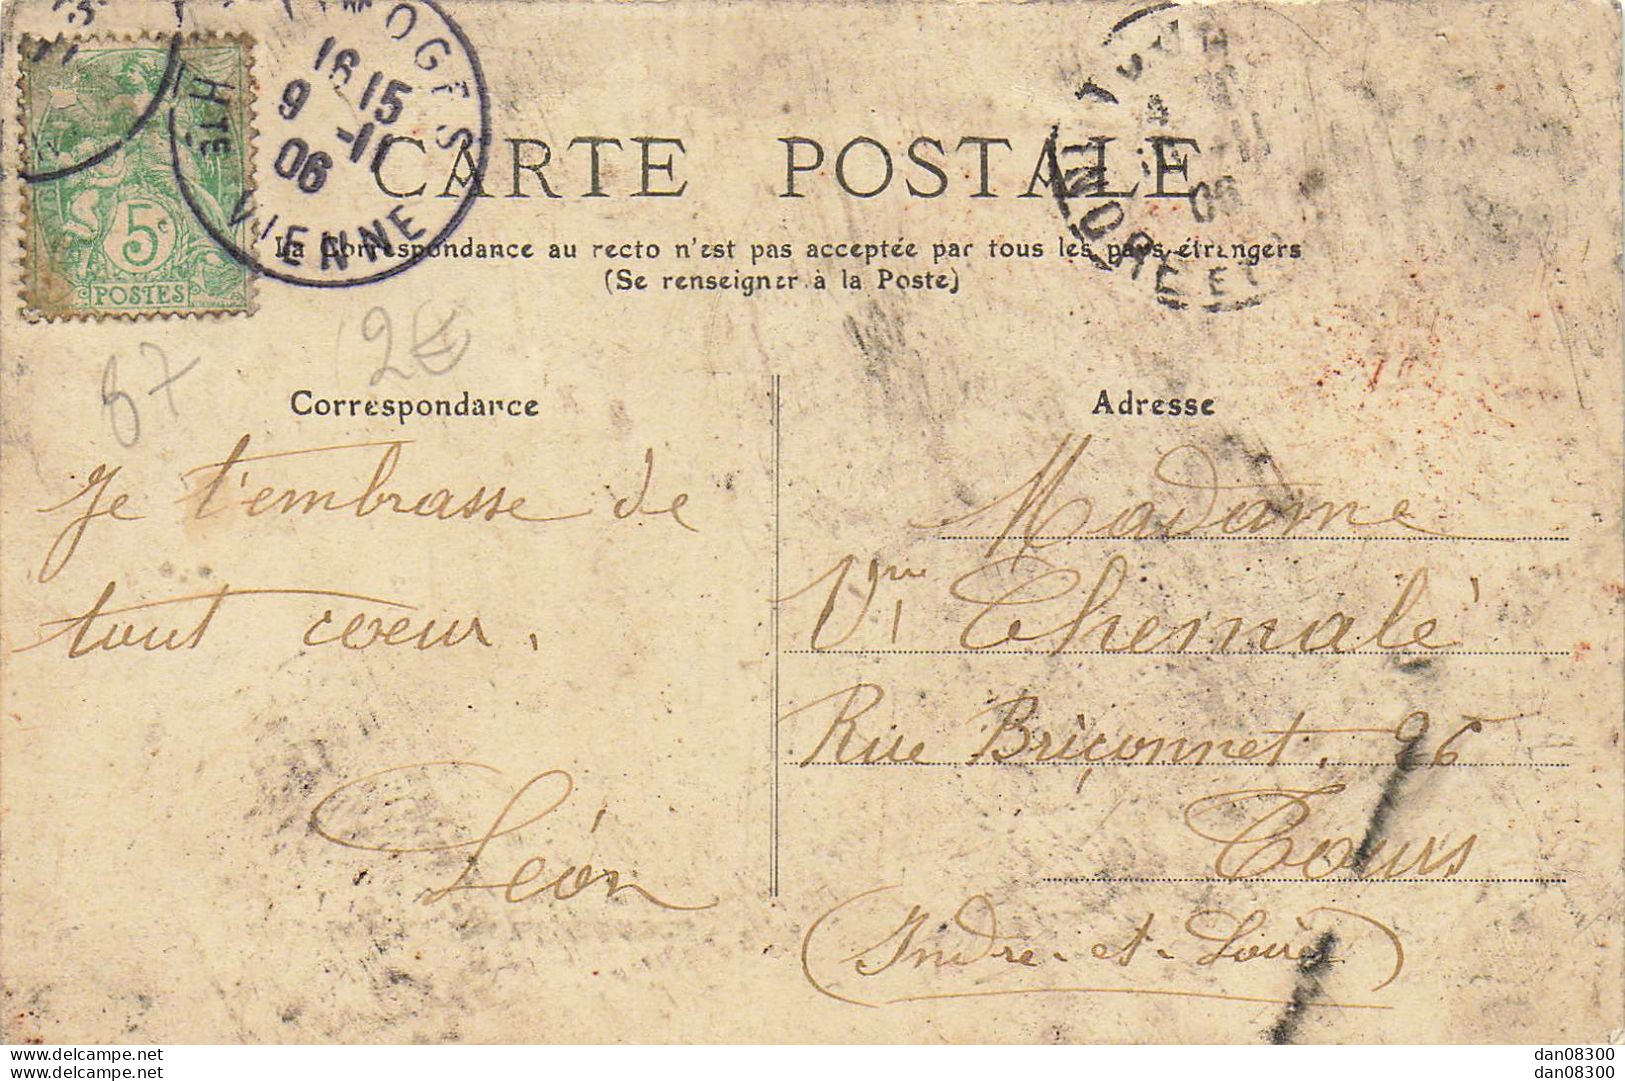 16 15
9 -11
06
HTE VIENNE
5c
POSTES
-11
06
CARTE POSTALE
La Correspondance au recto n'est pas acceptée par tous les pays étrangers
(Se renseigner à la Poste)
87
2€
Correspondance
Je t'embrasse de
tout coeur.
Léon
Adresse
Madame
Vve Chemalé
Rue Briçonnet. 26
Tours
(Indre-et-Loire)
www.delcampe.com
www.delcampe.com
dan08300
dan08300